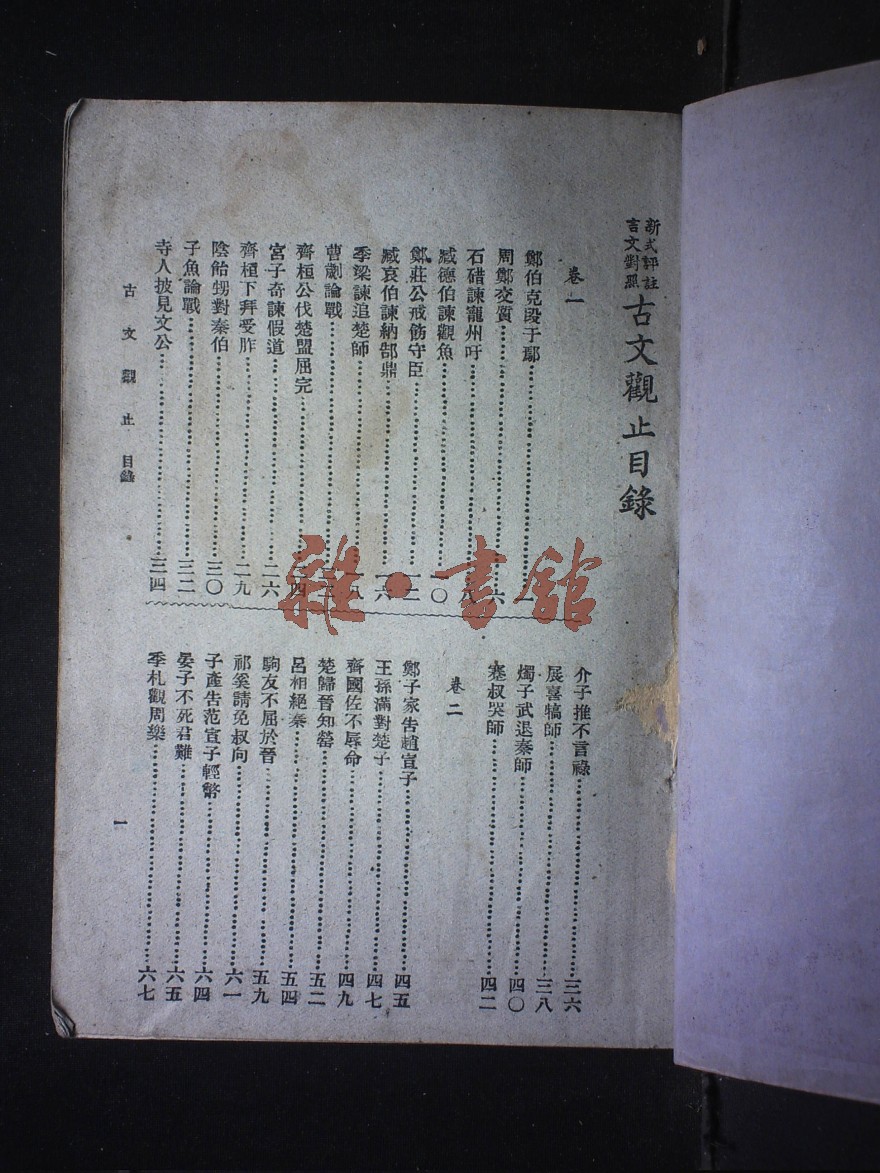 新式評註
言文對照
古文觀止目錄
卷一
鄭伯克段于鄢
周鄭交質 六
石碏諫寵州吁 八
臧僖伯諫觀魚 一〇
鄭莊公戒飭守臣 一二
臧哀伯諫納郜鼎 一六
季梁諫追楚師 一八
曹劌論戰
齊桓公伐楚盟屈完 二四
宮子奇諫假道 二六
齊桓下拜受胙 二九
陰飴甥對秦伯 三〇
子魚論戰 三二
寺人披見文公 三四
介子推不言祿 三六
展喜犒師 三八
燭子武退秦師 四〇
蹇叔哭師 四二
卷二
鄭子家告趙宣子 四五
王孫滿對楚子 四七
齊國佐不辱命 四九
楚歸晉知罃 五二
呂相絕秦 五四
駒友不屈於晉 五九
祁奚請免叔向 六一
子產告范宣子輕幣 六四
晏子不死君難 六五
季札觀周樂 六七
古文觀止 目錄
一
雜·書館